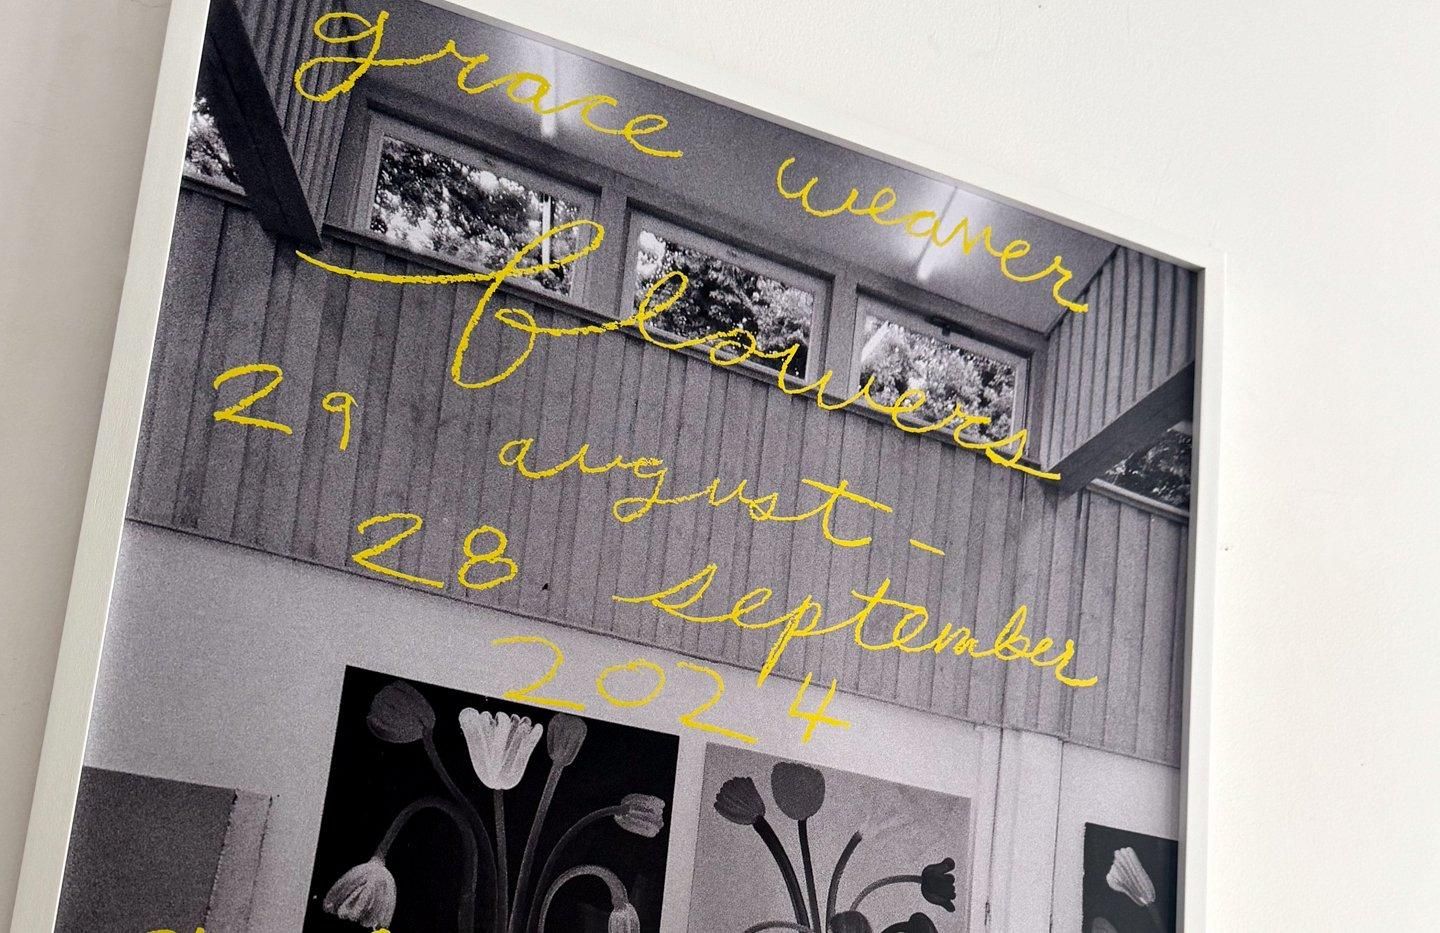 grace weaver
flowers
29 august -
28 september
2024